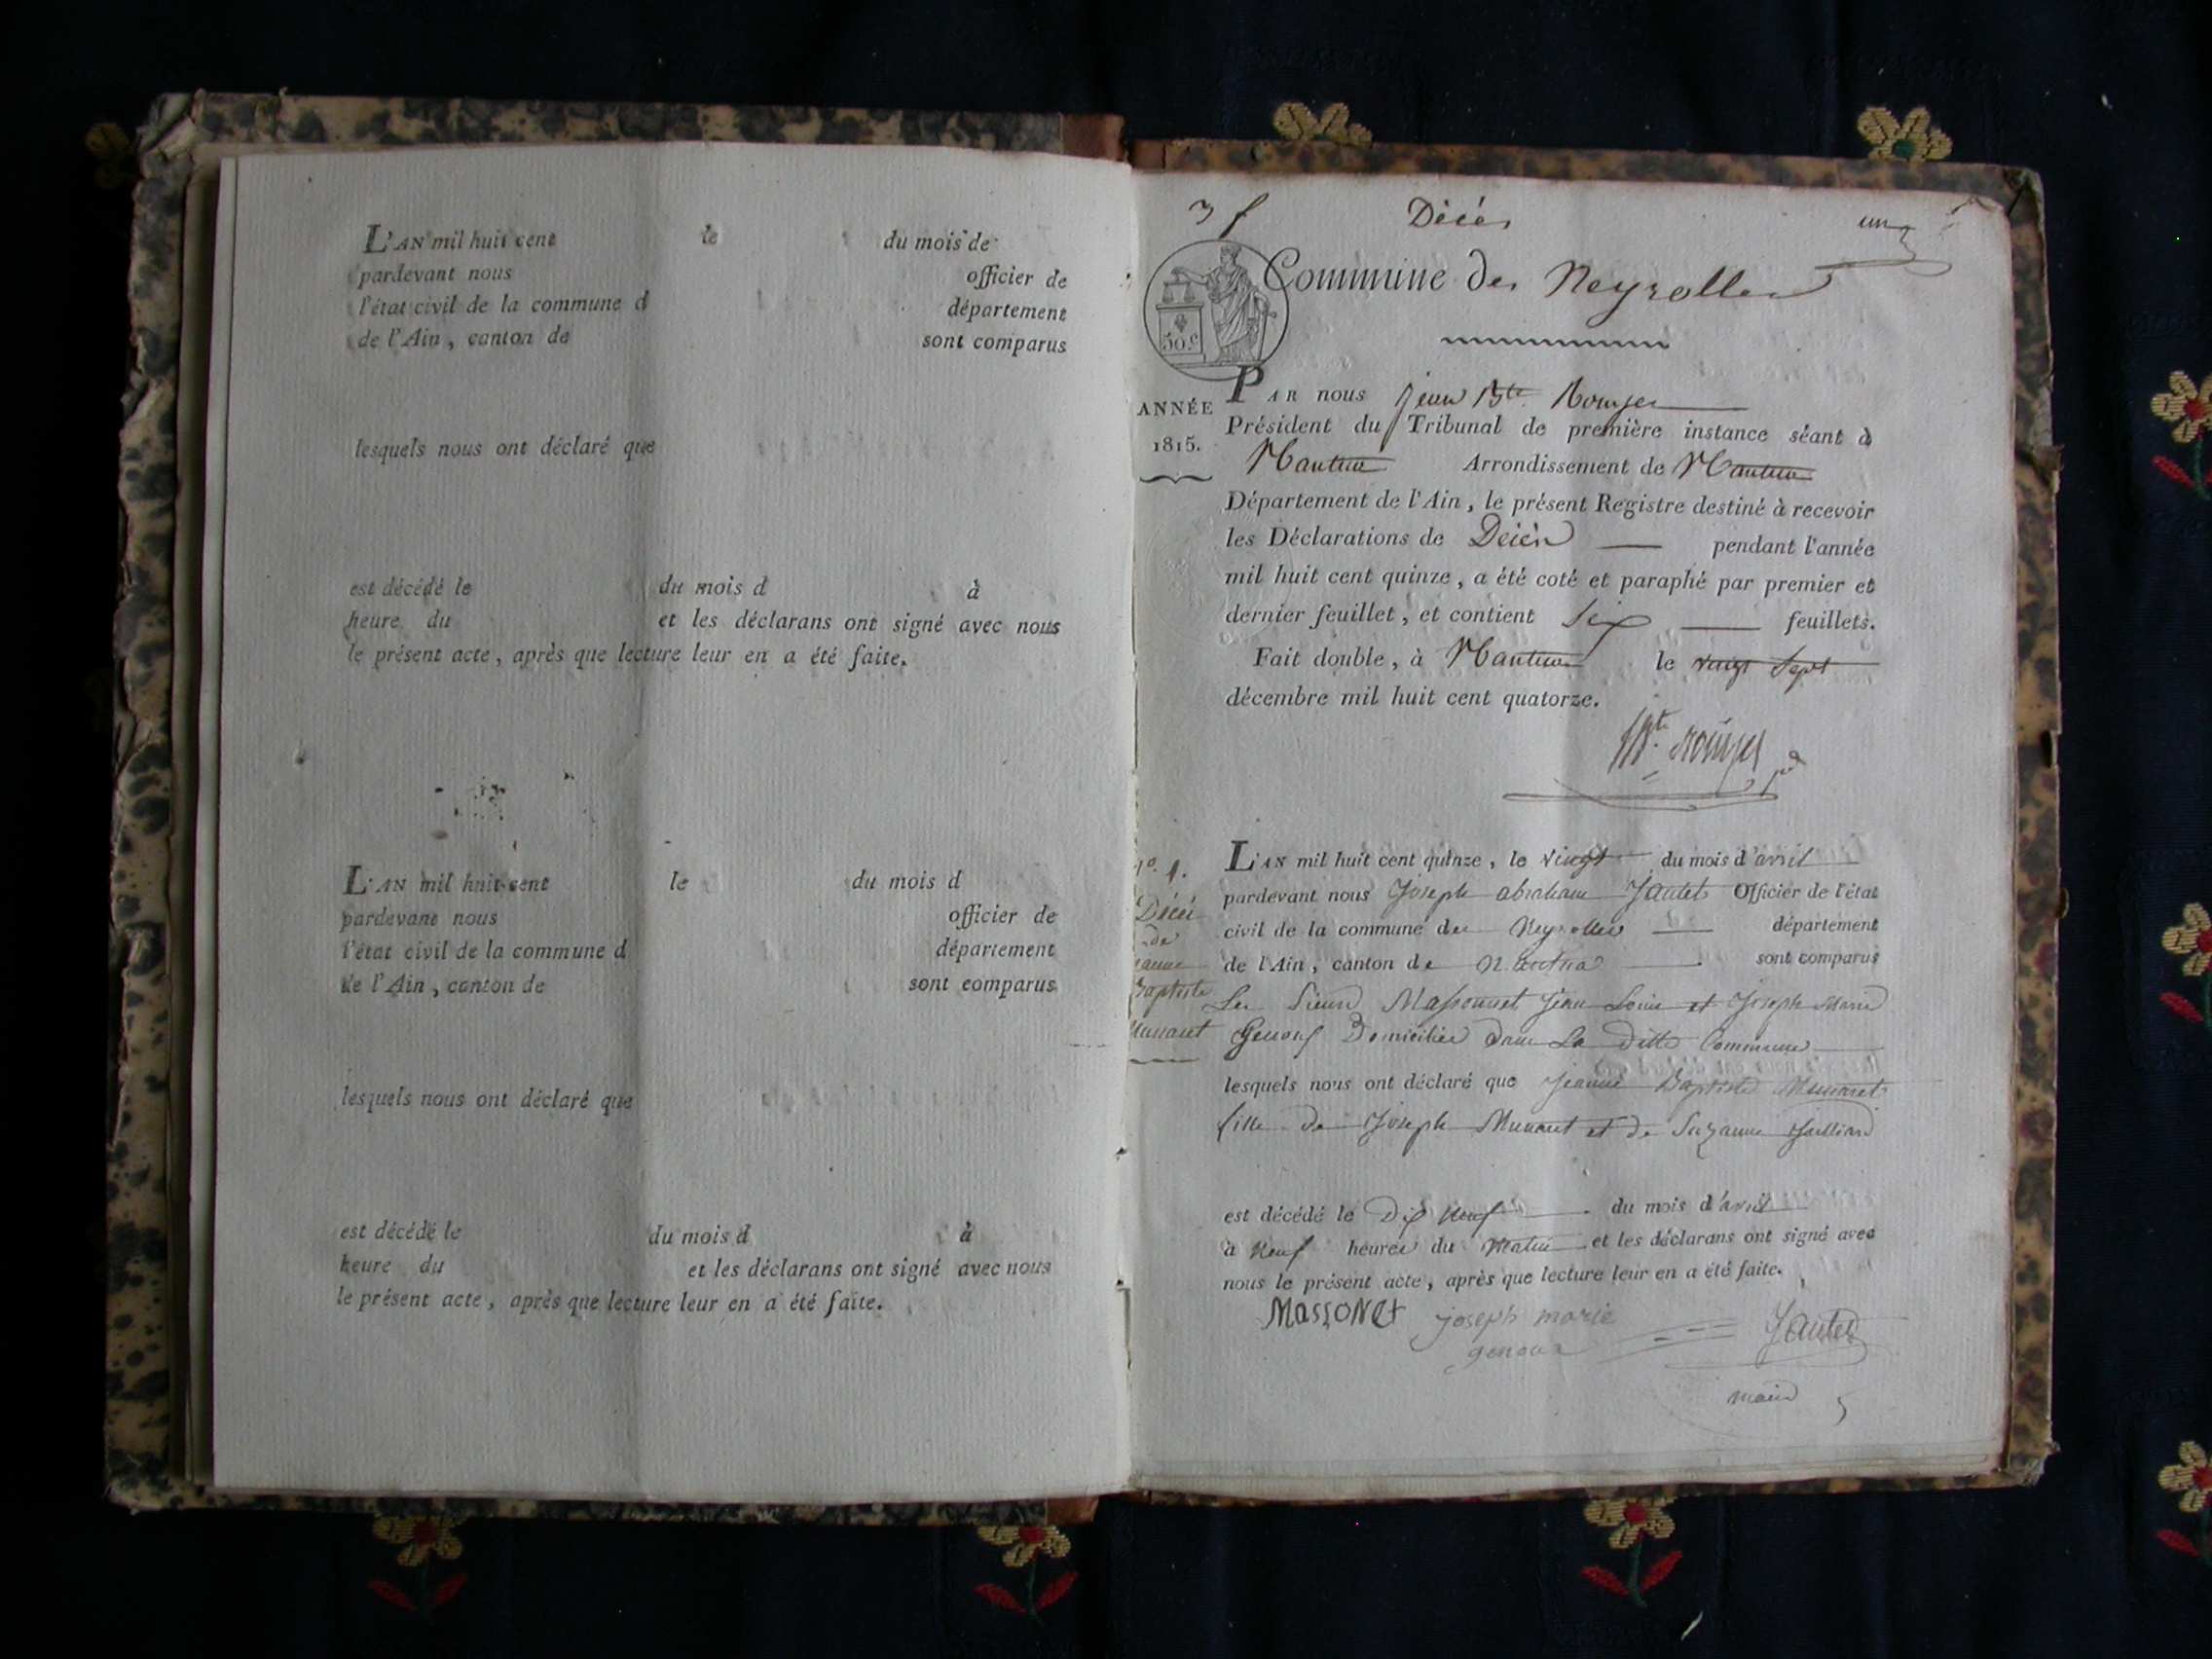 L'AN mil huit cent le du mois de
pardevant nous officier de
l'état civil de la commune d département
de l'Ain, canton de sont comparus
lesquels nous ont déclaré que
est décédé le du mois d à
heure du et les déclarans ont signé avec nous
le présent acte, après que lecture leur en a été faite.
L'AN mil huit cent le du mois d
pardevant nous officier de
l'état civil de la commune d département
de l'Ain, canton de sont comparus
lesquels nous ont déclaré que
est décédé le du mois d à
heure du et les déclarans ont signé avec nous
le présent acte, après que lecture leur en a été faite.
3 f Décès un
Commune des Neyrolles
50.c
ANNÉE
1815.
PAR nous jean Bte. Rouyer
Président du Tribunal de première instance séant à
Nantua Arrondissement de Nantua
Département de l'Ain, le présent Registre destiné à recevoir
les Déclarations de Décès pendant l'année
mil huit cent quinze, a été coté et paraphé par premier et
dernier feuillet, et contient Six feuillets.
Fait double, à Nantua le vingt Sept
décembre mil huit cent quatorze.
Bte. Rouyer
no. 1.
Décè
de
jeanne
Baptiste
Munaret
L'AN mil huit cent quinze, le vingt du mois d'avril
pardevant nous Joseph abraham Jantet Officier de l'état
civil de la commune des Neyrolles département
de l'Ain, canton de nantua sont comparus
Les Sieurs Massonnet Jean Louis et Joseph Marie
Genoux Domiciliés dans La ditte Commune
lesquels nous ont déclaré que Jeanne Baptiste Munaret
fille de Joseph Munaret et de Suzanne
est décédé le Dix neuf du mois d'avril
à Neuf heures du Matin et les déclarans ont signé avec
nous le présent acte, après que lecture leur en a été faite.
MassoNet joseph marie Jantet
genoux
maire